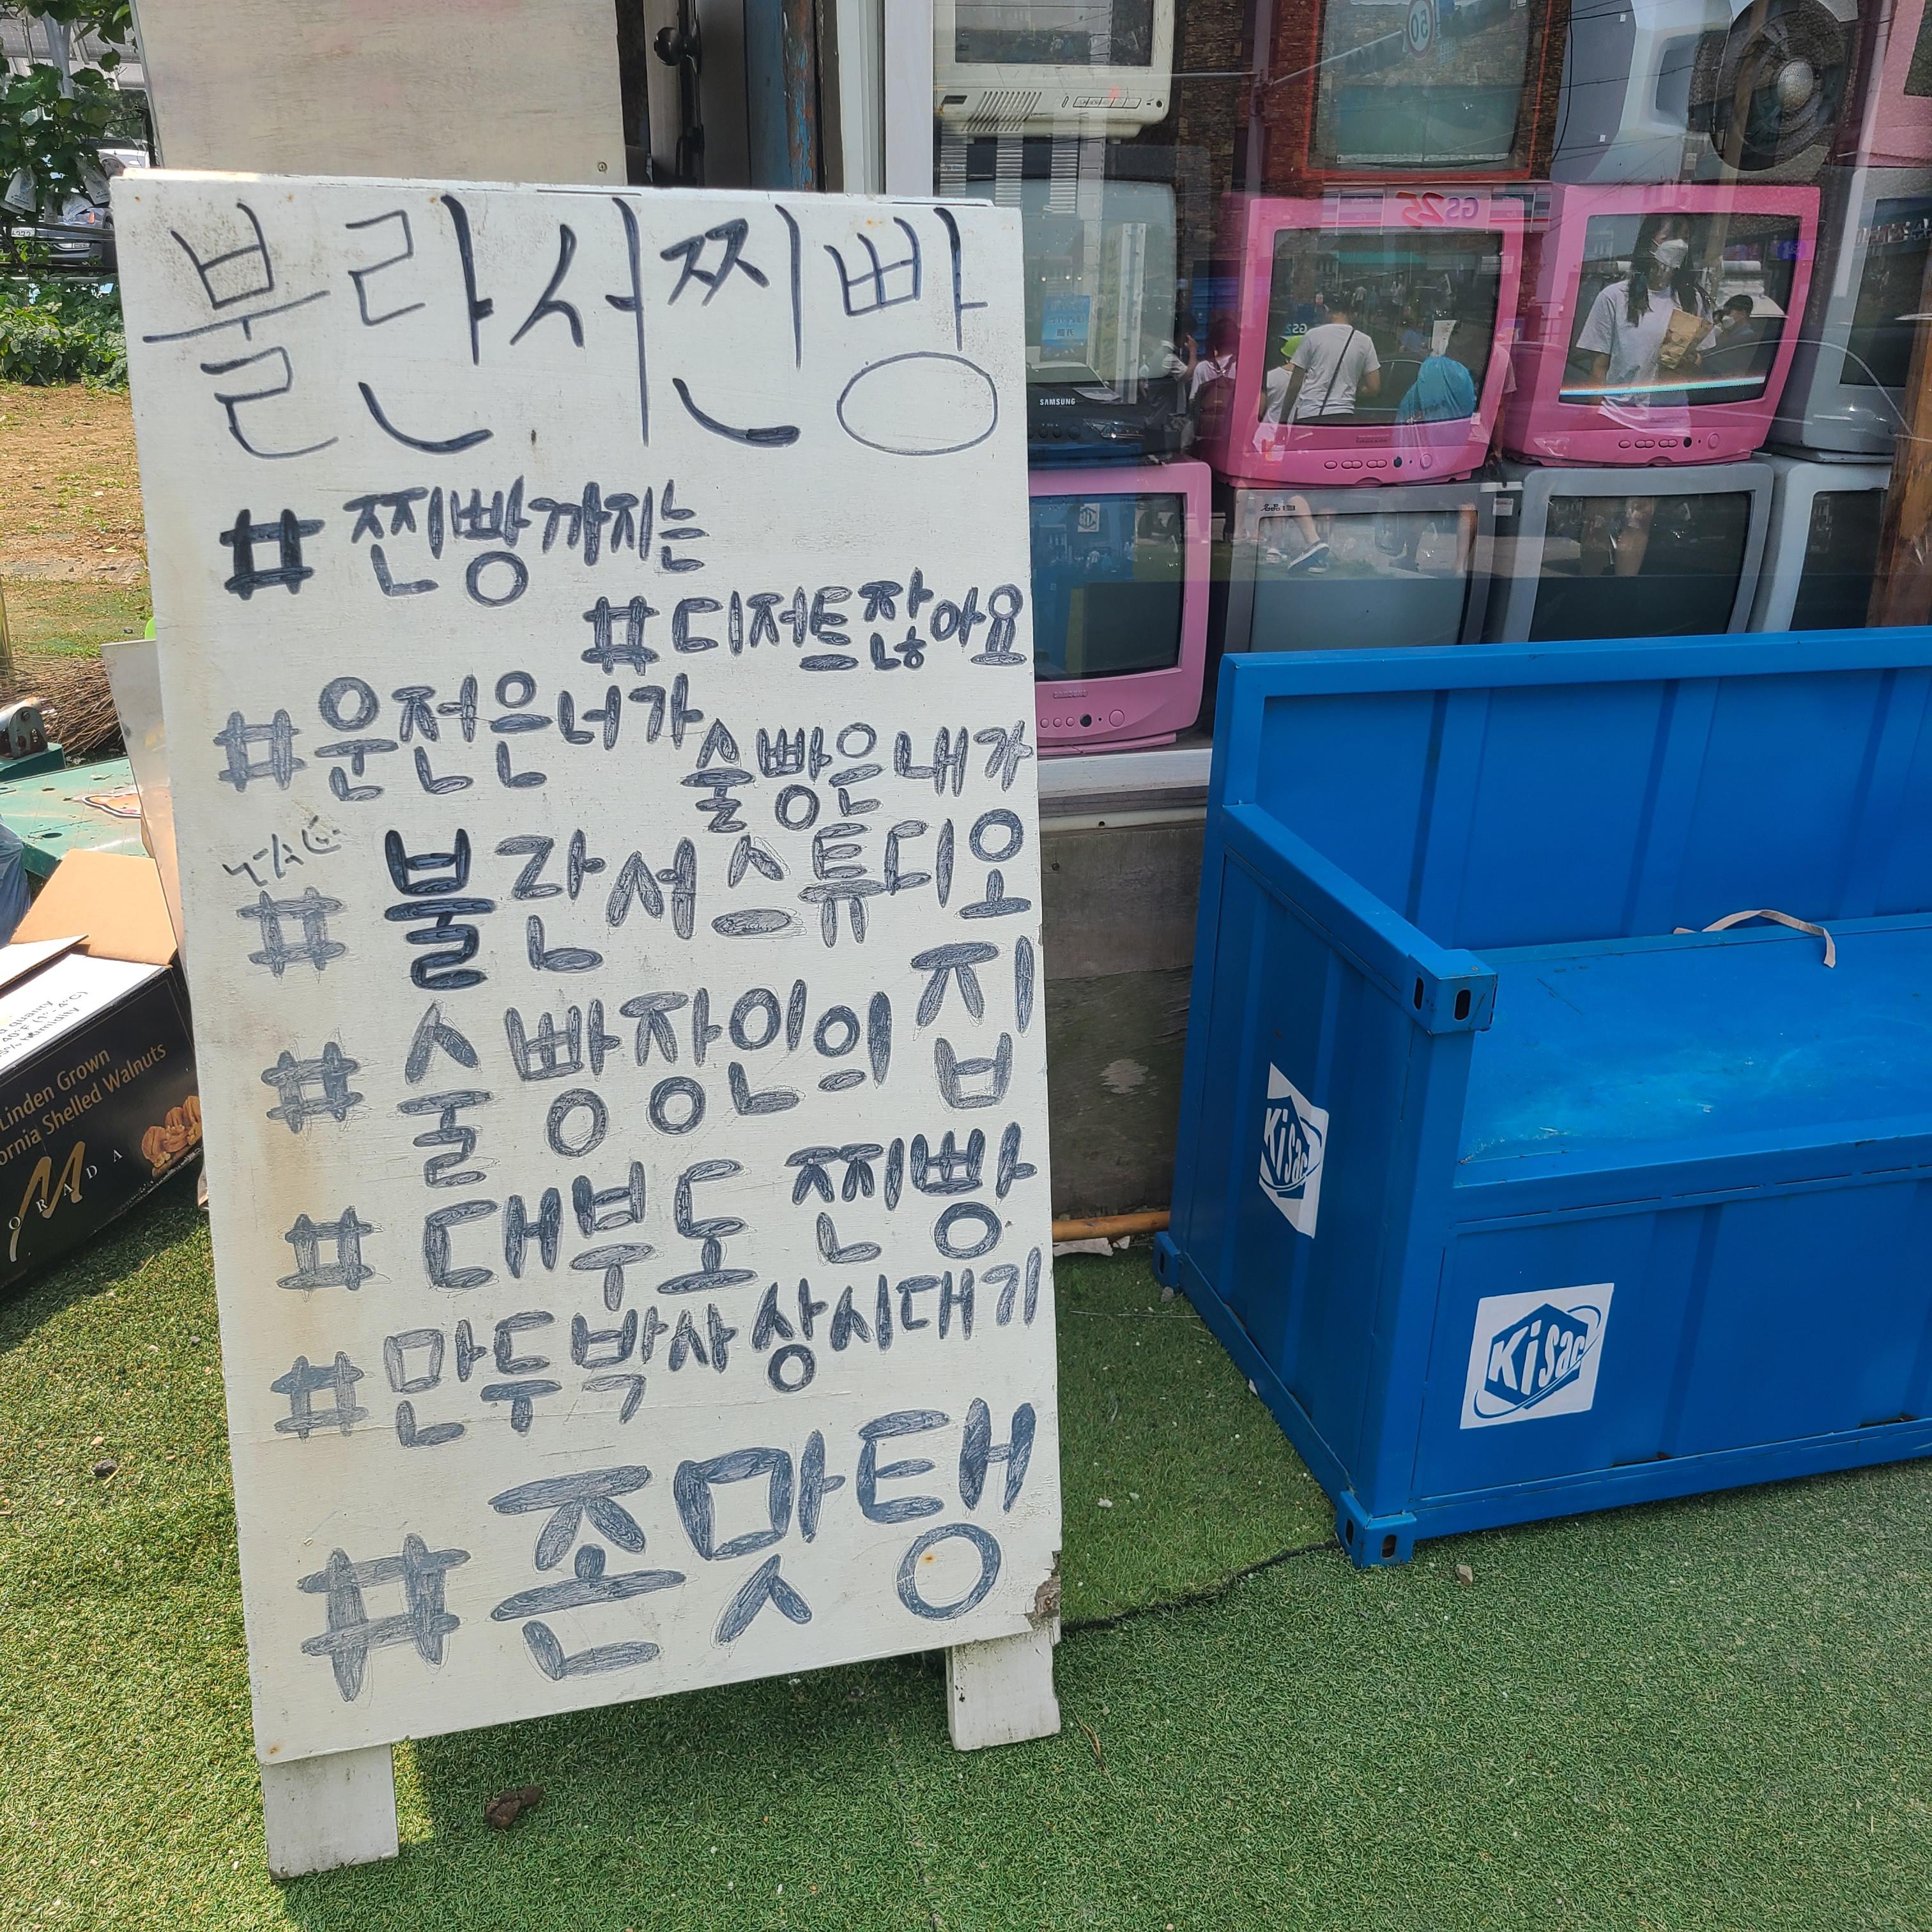 불란서찐빵
# 찐빵까지는
# 디저트잖아요
# 운전은너가
술빵은내가
# 불란서스튜디오
# 술빵장인의 집
# 대부도 찐빵
# 만두박사상시대기
# 존맛탱
SAMSUNG
SAMSUNG
GS25
50
Linden Grown
ornia Shelled Walnuts
MORADA
Kisac
Kisac